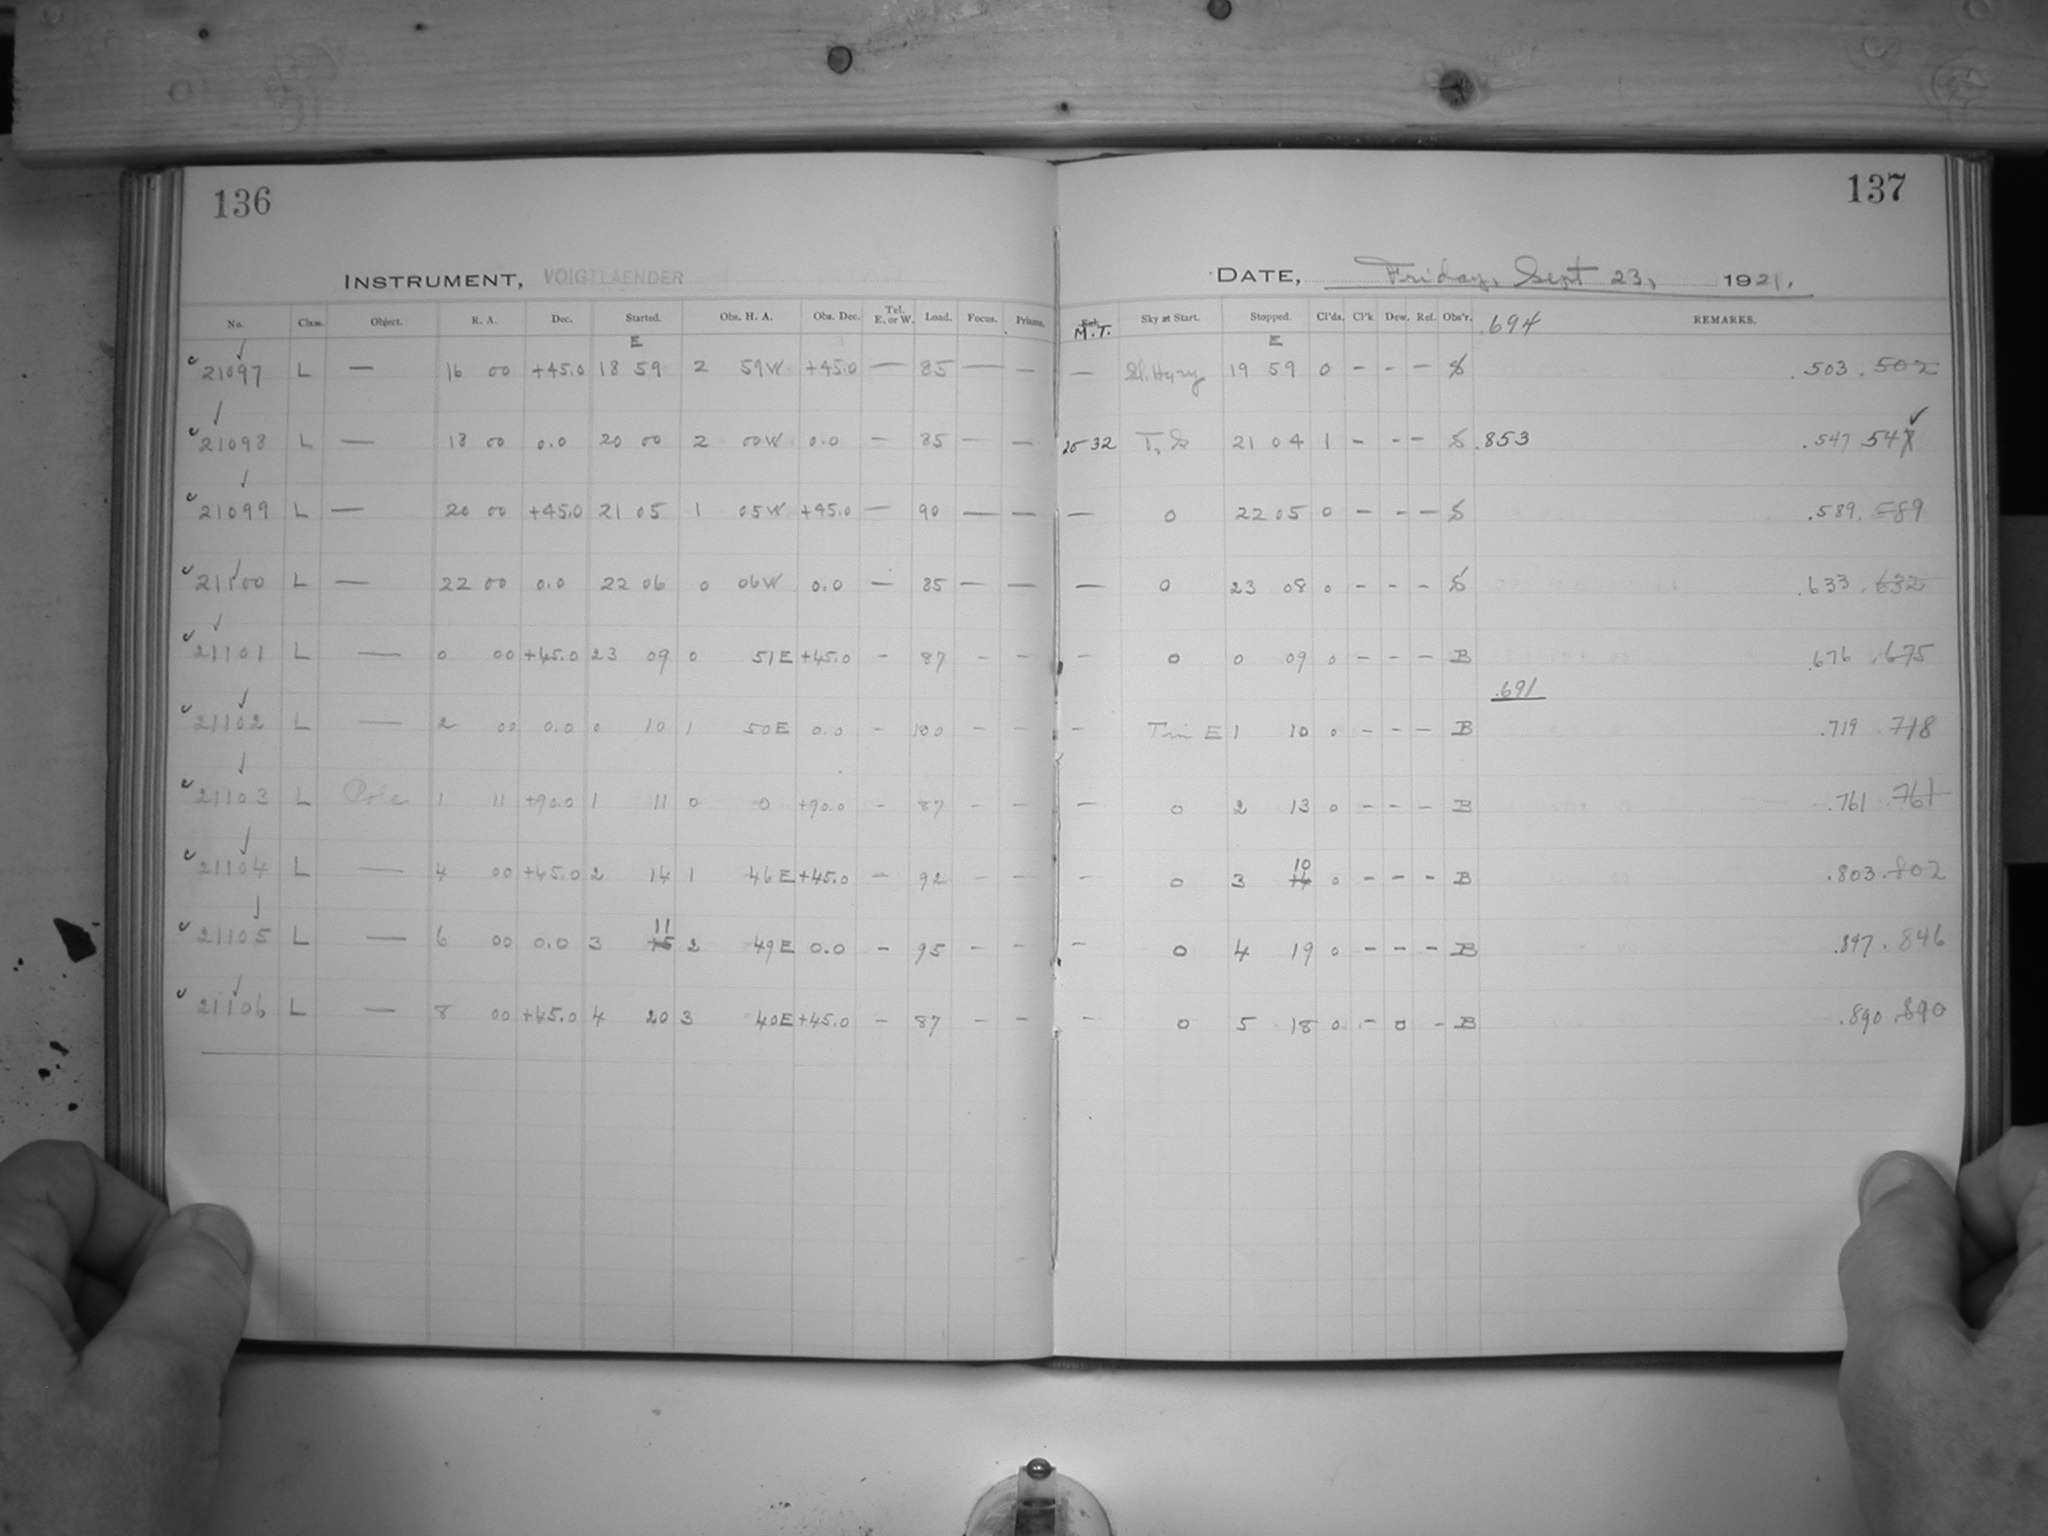 136
137
INSTRUMENT, VOIGTLAENDER
DATE, Friday, Sept 23, 1921.
No. Class. Object. R. A. Dec. Started. Obs. H. A. Obs. Dec. Tel. E. or W. Load. Focus. Prisms. M.T. Sky at Start. Stopped. Cl'ds. Cl'k Dew. Ref. Obs'r. .694 REMARKS.
E E
21097 L — 16 00 +45.0 18 59 2 59W +45.0 — 85 — — — Sl. Hazy 19 59 0 - - - S .503 .502
21098 L — 18 00 0.0 20 00 2 00W 0.0 — 85 — — 20 32 21 04 1 - - - S .853 .547 547
21099 L — 20 00 +45.0 21 05 1 05W +45.0 — 90 — — — 0 22 05 0 - - - S .589 .589
21100 L — 22 00 0.0 22 06 0 06W 0.0 — 85 — — — 0 23 08 0 - - - S .633 .632
21101 L — 0 00 +45.0 23 09 0 51E +45.0 - 87 - - - 0 0 09 0 - - - B .676 .675
.691
21102 L — 2 00 0.0 0 10 1 50E 0.0 - 100 - - - E 1 10 0 - - - B .719 .718
21103 L Pole 1 11 +90.0 1 11 0 0 +90.0 - 87 - - - 0 2 13 0 - - - B .761 .761
10
21104 L — 4 00 +45.0 2 14 1 46E +45.0 - 92 - - - 0 3 14 0 - - - B .803 .802
11
21105 L — 6 00 0.0 3 15 2 49E 0.0 - 95 - - - 0 4 19 0 - - - B .847 .846
21106 L — 8 00 +45.0 4 20 3 40E +45.0 - 87 - - - 0 5 18 0 - 0 - B .890 .890